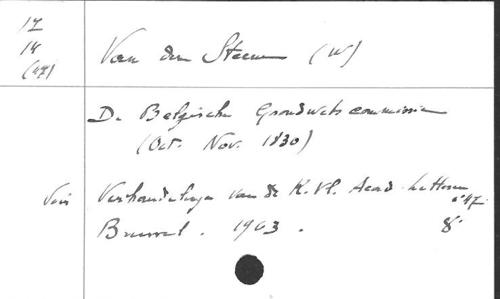 17
14
(47)
Van den Steene (W)
De Belgische Grondwetscommissie
(Oct. Nov. 1830)
Voir Verhandelingen van de K. Vl. Acad. Letteren
n° 47.
Brussel. 1963. 8°